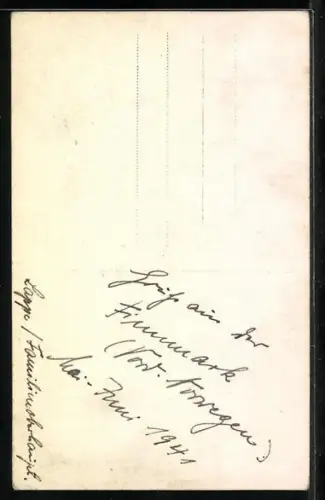 Gruß aus der
Finnmark
(Nord. Norwegen)
Mai-Juni 1941
Lappe/Familienoberhaupt.